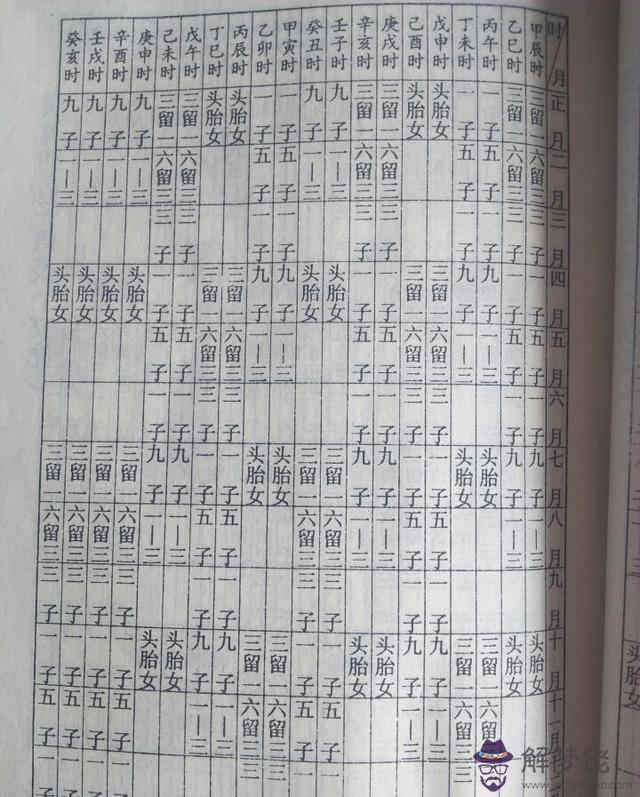 时/月 正月 二月 三月 四月 五月 六月 七月 八月 九月 十月 十一月
甲辰时 三留一 六留三 三子 一子 五子 一子 九子 一—三 头胎女
乙巳时 三留一 六留三 三子 一子 五子 一子 九子 一—三 头胎女
丙午时 一子 五子 一子 九子 一—三 头胎女 三留一 六留三 三
丁未时 一子 五子 一子 九子 一—三 头胎女 三留一 六留三 三
戊申时 头胎女 三留一 六留三 三子 一子 五子 一子 九子 一—三
己酉时 头胎女 三留一 六留三 三子 一子 五子 一子 九子 一—三
庚戌时 三留一 六留三 三子 一子 五子 一子 九子 一—三 头胎女
辛亥时 三留一 六留三 三子 一子 五子 一子 九子 一—三 头胎女
壬子时 九子 一—三 头胎女 三留一 六留三 三子 一子 五子 一
癸丑时 九子 一—三 头胎女 三留一 六留三 三子 一子 五子 一
甲寅时 一子 五子 一子 九子 一—三 头胎女 三留一 六留三 三
乙卯时 一子 五子 一子 九子 一—三 头胎女 三留一 六留三 三
丙辰时 头胎女 三留一 六留三 三子 一子 五子 一子 九子 一—三
丁巳时 头胎女 三留一 六留三 三子 一子 五子 一子 九子 一—三
戊午时 三留一 六留三 三子 一子 五子 一子 九子 一—三 头胎女
己未时 三留一 六留三 三子 一子 五子 一子 九子 一—三 头胎女
庚申时 九子 一—三 头胎女 三留一 六留三 三子 一子 五子 一
辛酉时 九子 一—三 头胎女 三留一 六留三 三子 一子 五子 一
壬戌时 九子 一—三 头胎女 三留一 六留三 三子 一子 五子 一
癸亥时 九子 一—三 头胎女 三留一 六留三 三子 一子 五子 一
头胎女
解梦佬